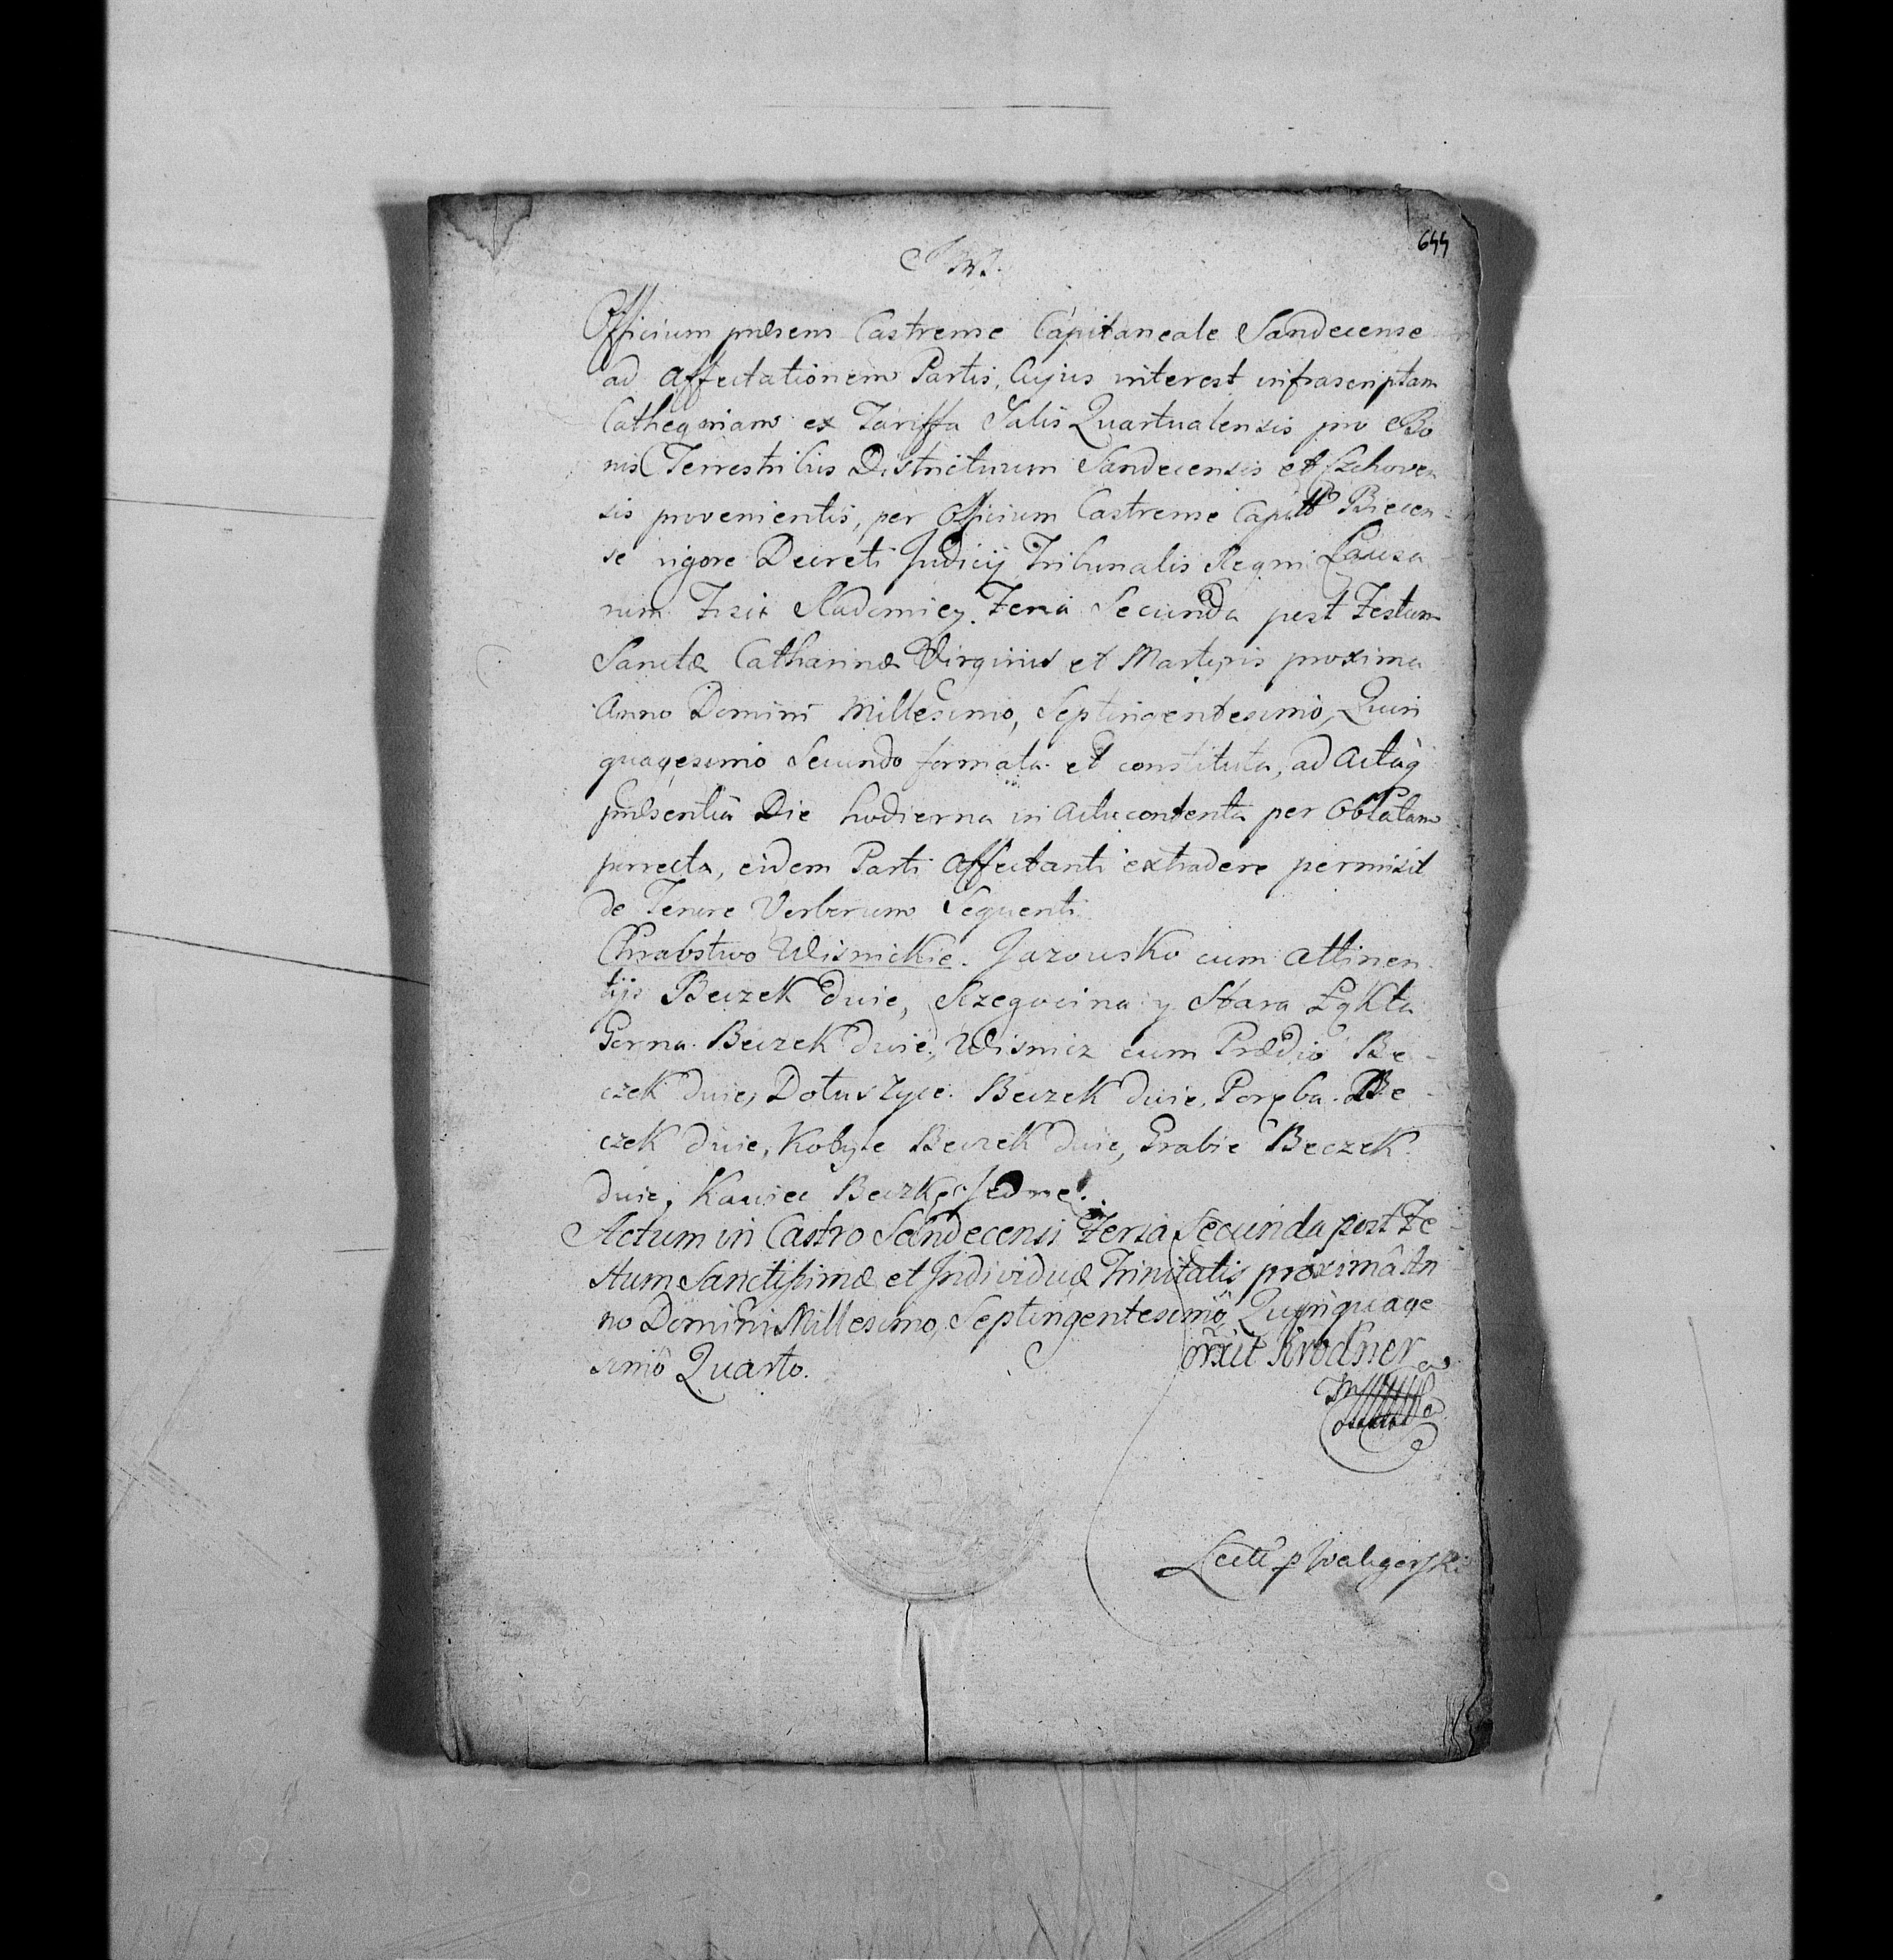 644
Officium præsens Castrense Capitaneale Sandecense
ad Affectationem Partis, Cujus interest infrascriptam
Cathegoriam ex Tariffa Salis Quartualensis pro Bo
nis Terrestribus Districtuum Sandecensis et Czchoven
sis provenientis, per Officium Castrense Capitt Biecen-
se vigore Decreti Judicij Tribunalis Regni Causa
rum Fisci Radomiey. Feria Secunda post Festum
Sanctæ Catharinæ Virginis et Martyris proxima
Anno Domini Millesimo, Septingentesimo, Quin
quagesimo Secundo formata et constituta, ad Actaq
præsentia Die hodierna in Actu contenta per Oblatam
porrecta, eidem Parti Affectanti extradere permisit
de Tenore Verborum Sequenti
Chrabstwo Wisnickie. Jazowsko cum Attinen
tijs Beczek dwie, Rzegocina y Stara Łąkta
Gorna Beczek dwie, Wisnicz cum Prædio Be-
czek dwie, Dołuszyce. Beczek dwie, Poręba. Be-
czek dwie, Kobyle Beczek dwie, Grabie Beczek
dwie, Kawiec Beczkę Jedne.
Actum in Castro Sandecensi Feria Secunda post Fe-
stum Sanctissimæ et Individuæ Trinitatis proximâ An
no Domini Millesimo, Septingentesimô, Quynquage
simô Quarto.
Corrxit Krodner
Lectt p Waligorski